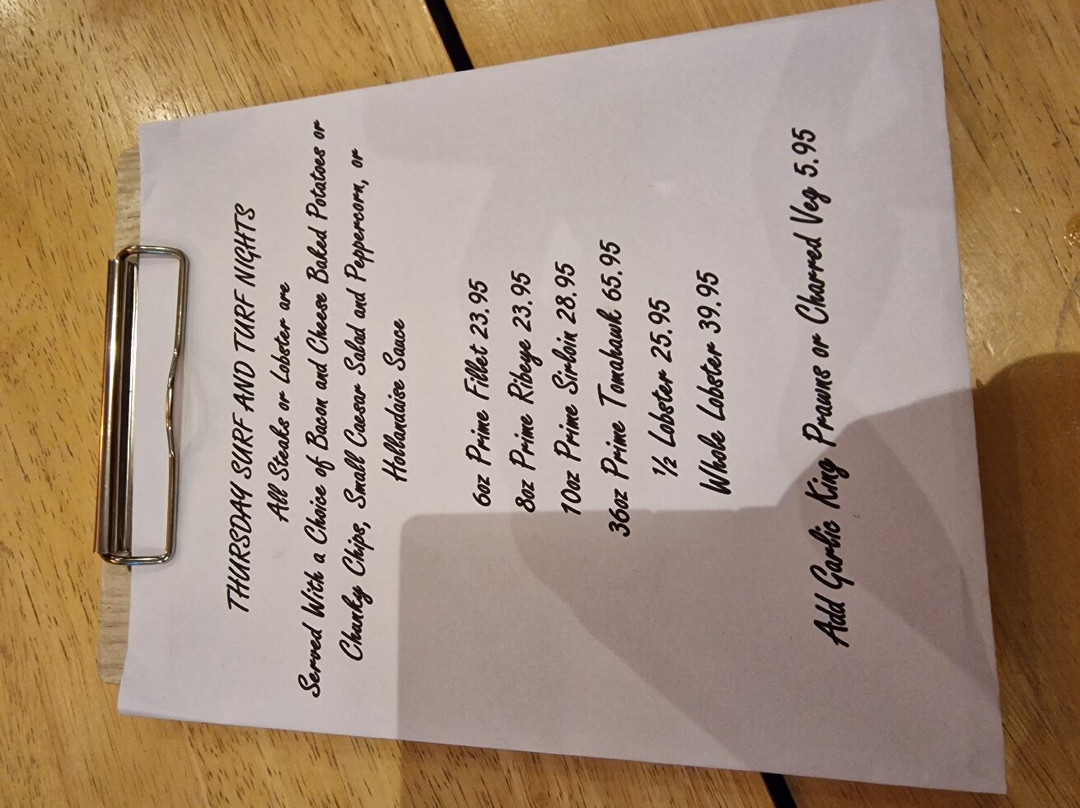 THURSDAY SURF AND TURF NIGHTS
All Steaks or Lobster are
Served With a Choice of Bacon and Cheese Baked Potatoes or
Chunky Chips, Small Caesar Salad and Peppercorn, or
Hollandaise Sauce
6oz Prime Fillet 23.95
8oz Prime Ribeye 23.95
10oz Prime Sirloin 28.95
36oz Prime Tomahawk 65.95
½ Lobster 25.95
Whole Lobster 39.95
Add Garlic King Prawns or Charred Veg 5.95